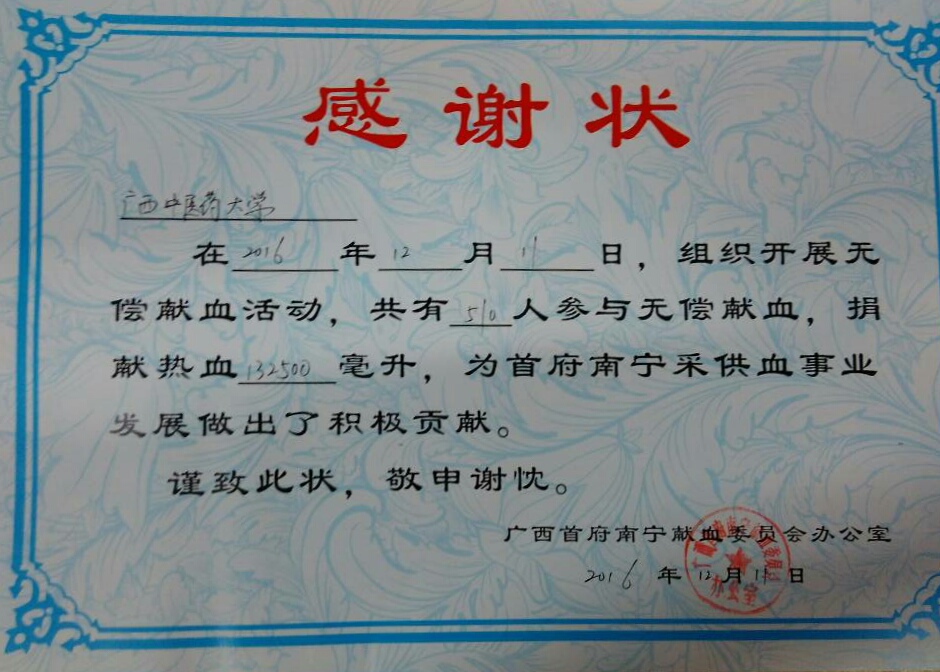 感谢状
广西中医药大学
在2016年12月11日，组织开展无
偿献血活动，共有510人参与无偿献血，捐
献热血132500毫升，为首府南宁采供血事业
发展做出了积极贡献。
谨致此状，敬申谢忱。
广西首府南宁献血委员会办公室
2016年12月11日
办公室